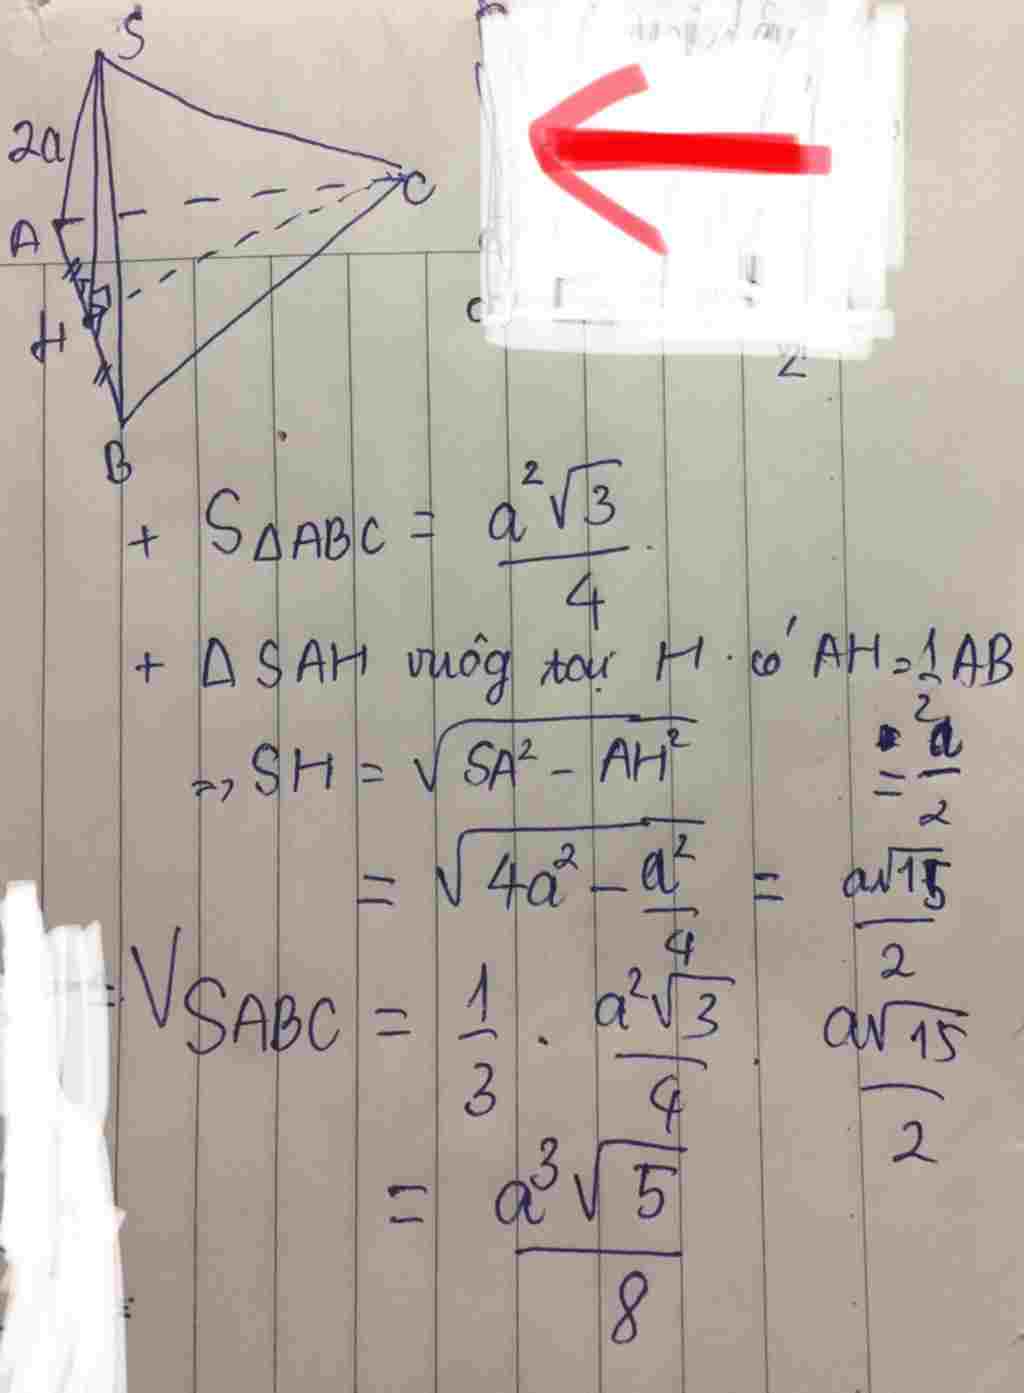 S
2a
A
C
H
B
2
+ S△ABC = a²√3/4
+ △SAH vuôg tại H. có AH = 1/2 AB
= a/2
=> SH = √(SA² - AH²)
= √(4a² - a²/4) = a√15/2
VSABC = 1/3 . a²√3/4 . a√15/2
= a³√5/8